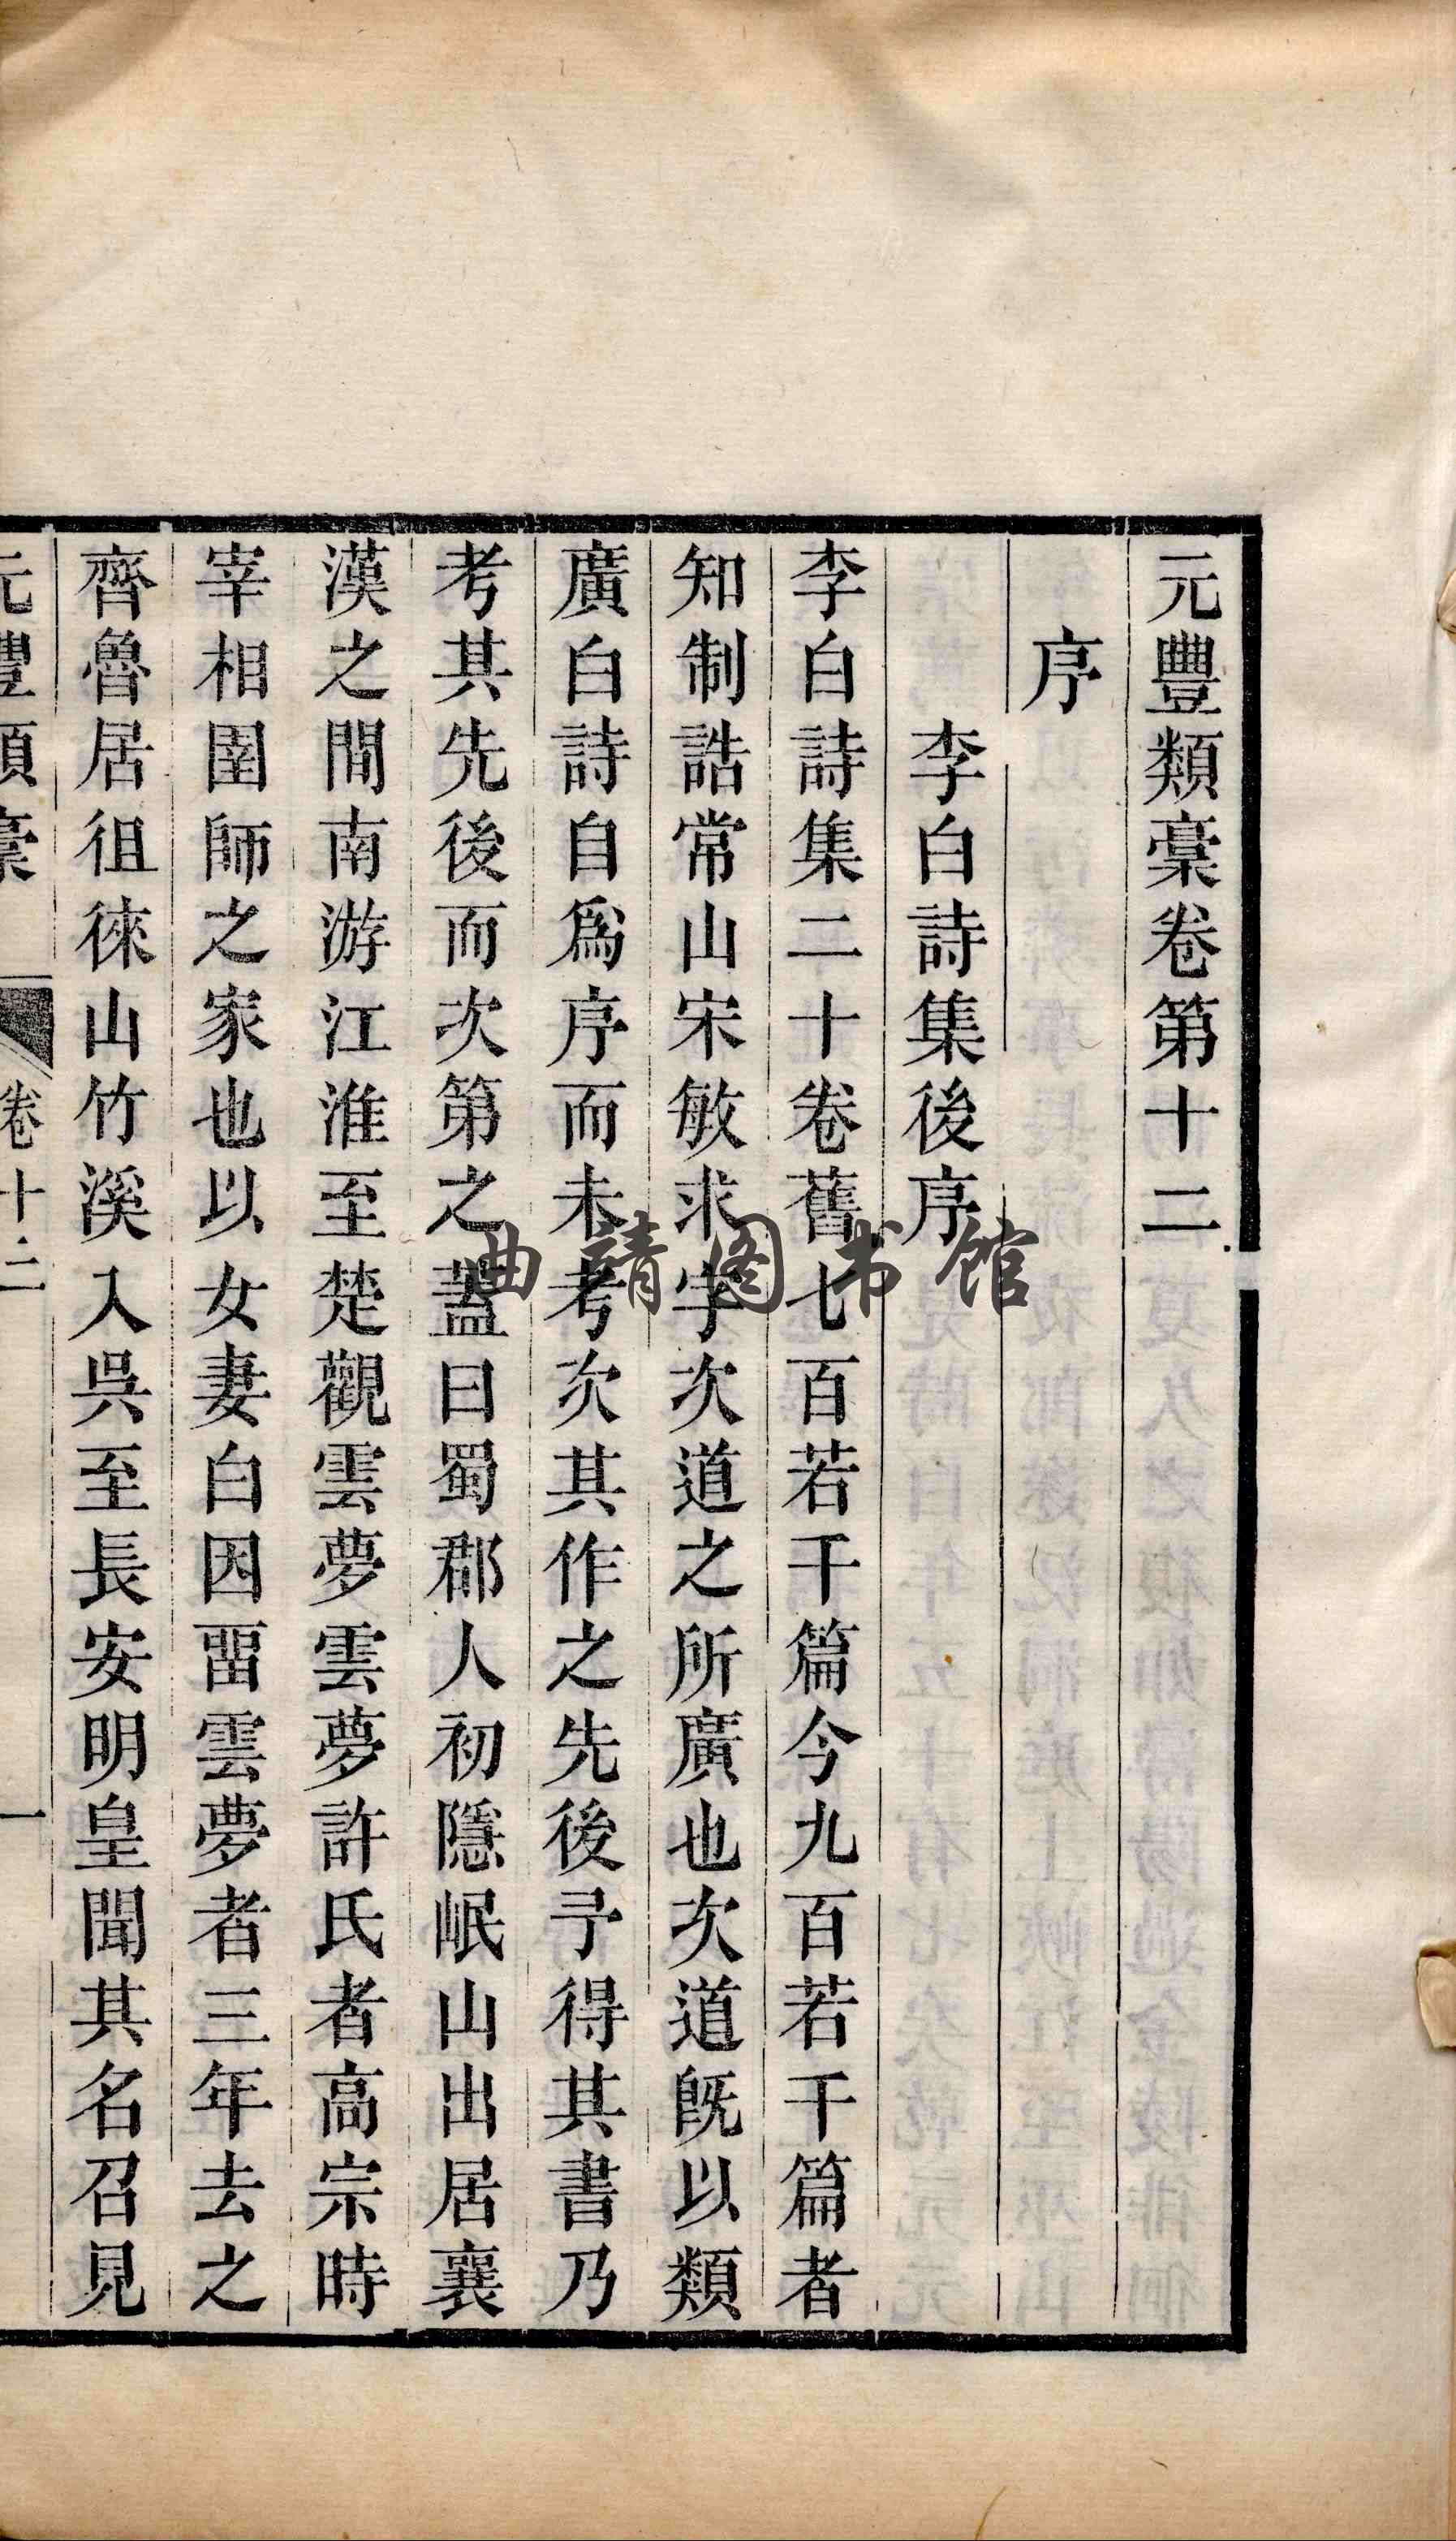 元豐類稾卷第十二
序
李白詩集後序
李白詩集二十卷舊七百若干篇今九百若干篇者
知制誥常山宋敏求字次道之所廣也次道既以類
廣白詩自爲序而未考次其作之先後予得其書乃
考其先後而次第之蓋曰蜀郡人初隱岷山出居襄
漢之間南游江淮至楚觀雲夢雲夢許氏者高宗時
宰相圉師之家也以女妻白因畱雲夢者三年去之
齊魯居徂徠山竹溪入吳至長安明皇聞其名召見
元豐類稾 卷十二 一
曲靖图书馆